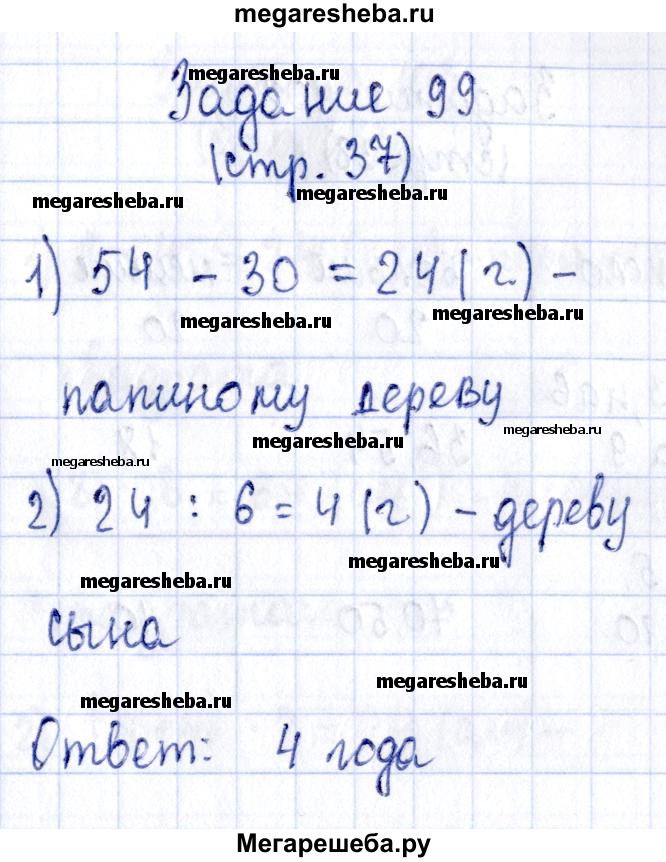 megaresheba.ru
megaresheba.ru
Задание 99
(стр. 37)
megaresheba.ru megaresheba.ru
1) 54 - 30 = 24 (г.) -
megaresheba.ru megaresheba.ru
папиному дереву
megaresheba.ru megaresheba.ru
megaresheba.ru
2) 24 : 6 = 4 (г) - дереву
megaresheba.ru
megaresheba.ru
сына
megaresheba.ru
megaresheba.ru
Ответ: 4 года
Мегарешеба.ру